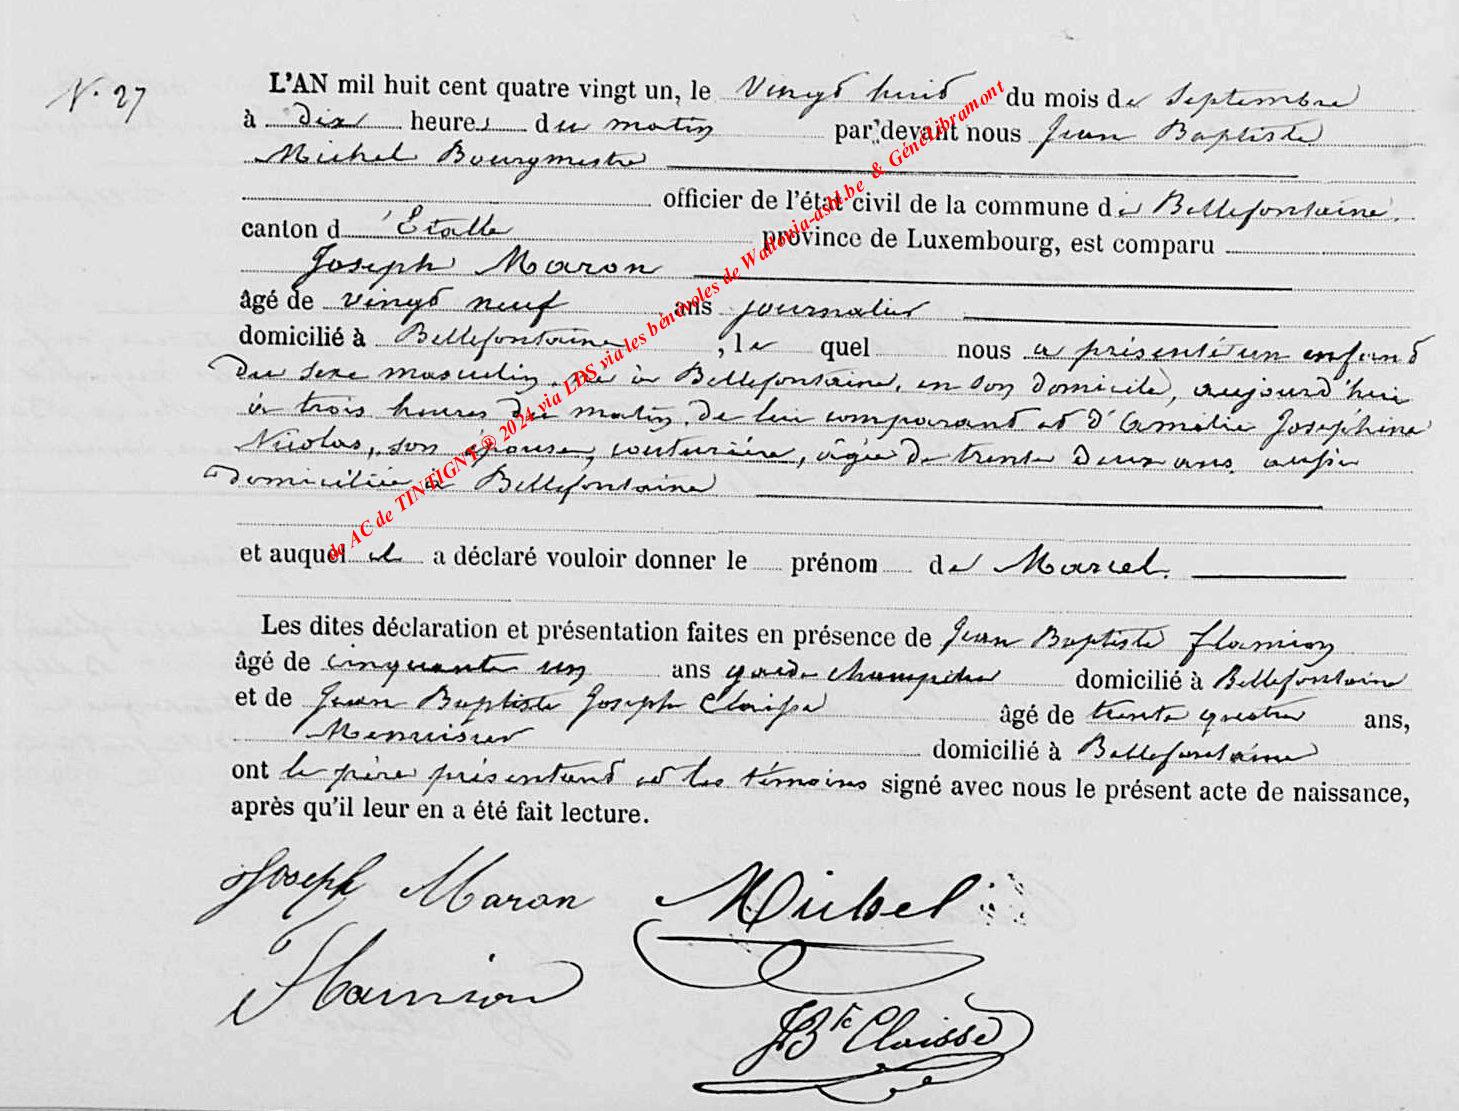 N. 27
L'AN mil huit cent quatre vingt un, le vingt huit du mois de Septembre
à dix heures du matin par devant nous Jean Baptiste
Michel Bourgmestre
officier de l'état civil de la commune de Bellefontaine,
canton d'Etalle province de Luxembourg, est comparu
Joseph Maron
âgé de vingt neuf ans journalier
domicilié à Bellefontaine, le quel nous a présenté un enfant
du sexe masculin, né à Bellefontaine, en son domicile, aujourd'hui
à trois heures du matin, de lui comparant et d'Amélie Joséphine
Nicolas, son épouse, couturière, âgée de trente deux ans, aussi
domiciliée à Bellefontaine
et auquel il a déclaré vouloir donner le prénom de Marcel.
Les dites déclaration et présentation faites en présence de Jean Baptiste Flamion
âgé de cinquante un ans garde champêtre domicilié à Bellefontaine
et de Jean Baptiste Joseph Claisse âgé de trente quatre ans,
Menuisier domicilié à Bellefontaine
ont le père présentant et les témoins signé avec nous le présent acte de naissance,
après qu'il leur en a été fait lecture.
Joseph Maron Michel
Flamion
JBte Claisse
de AC de TINTIGNY® 2024 via LDS via les bénévoles de Wallonia-asbl.be & GénéLibramont